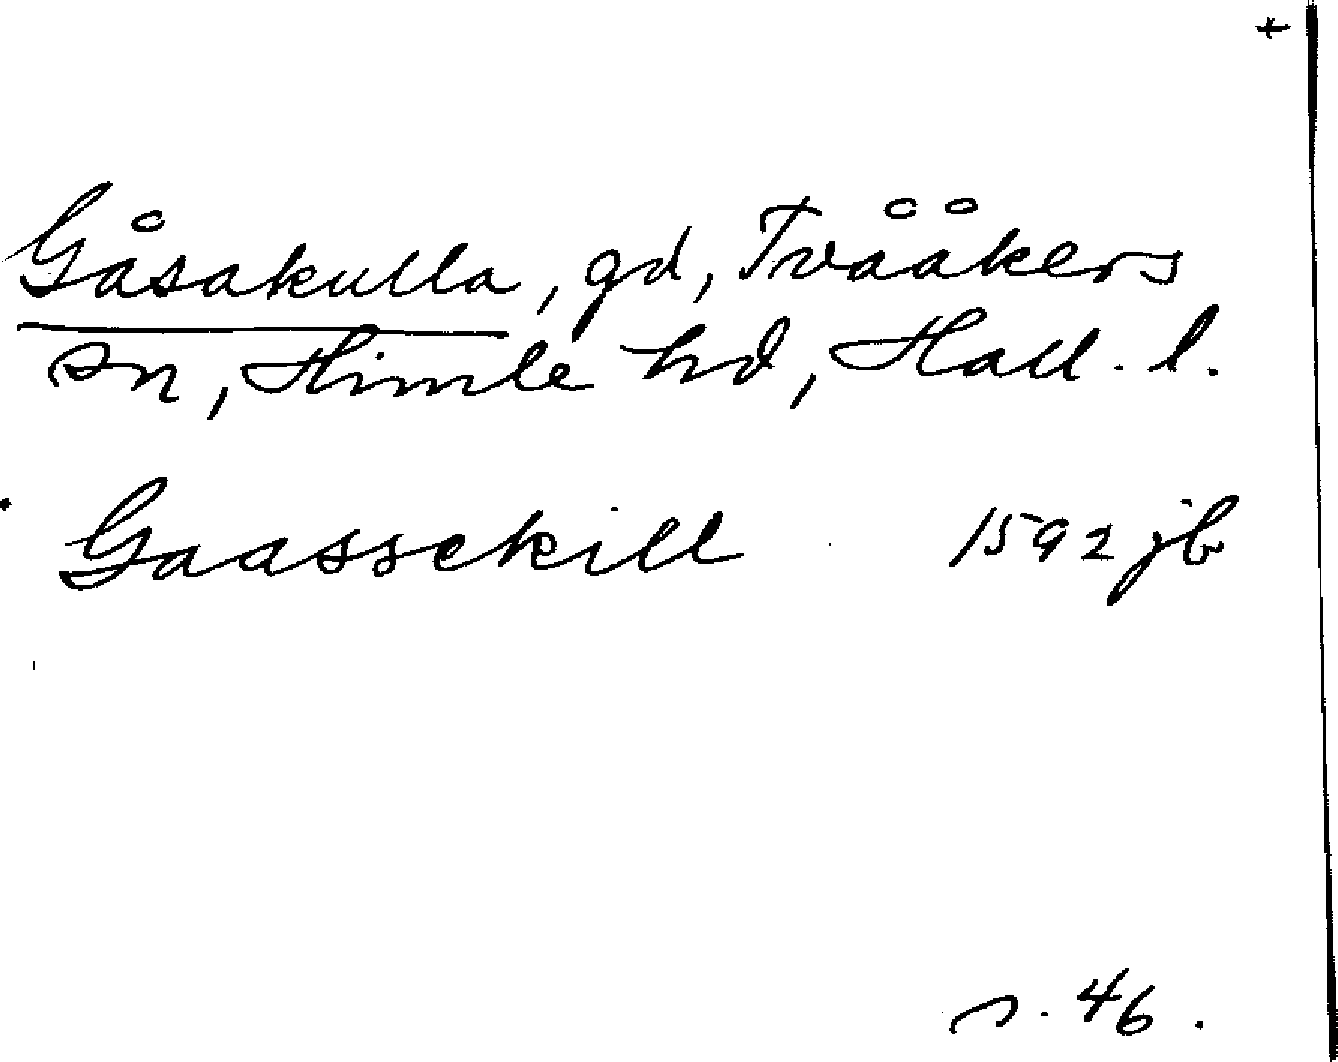 +
Gåsakulla, gd, Tvååkers
sn, Himle hd, Hall. l.
Gaassekill 1592 jb
s. 46.